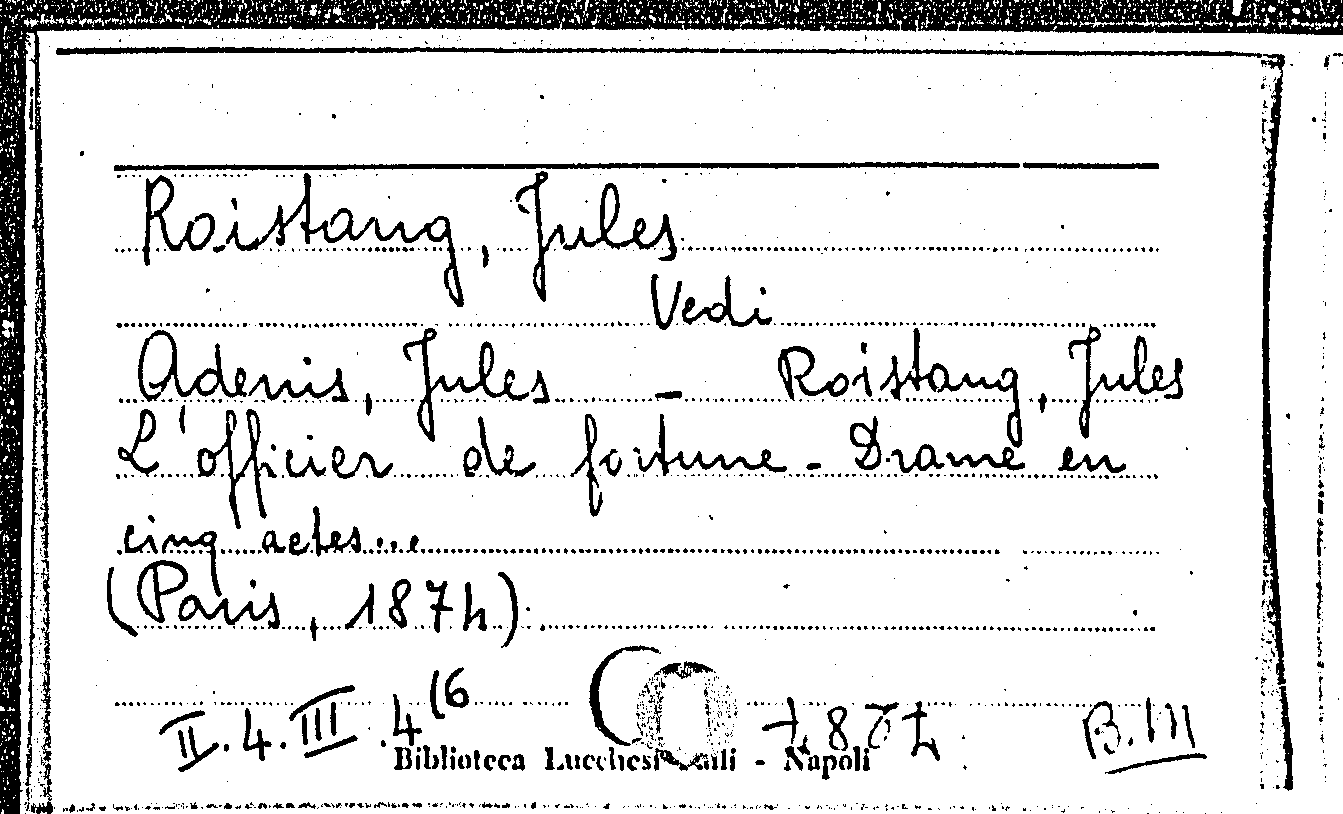 Roistang, Jules
Vedi
Adenis, Jules - Roistang, Jules
L'officier de fortune - Drame en
cinq actes...
(Paris, 1874)
II.4.III.4(6
B.III
Biblioteca Lucchesi Palli - Napoli